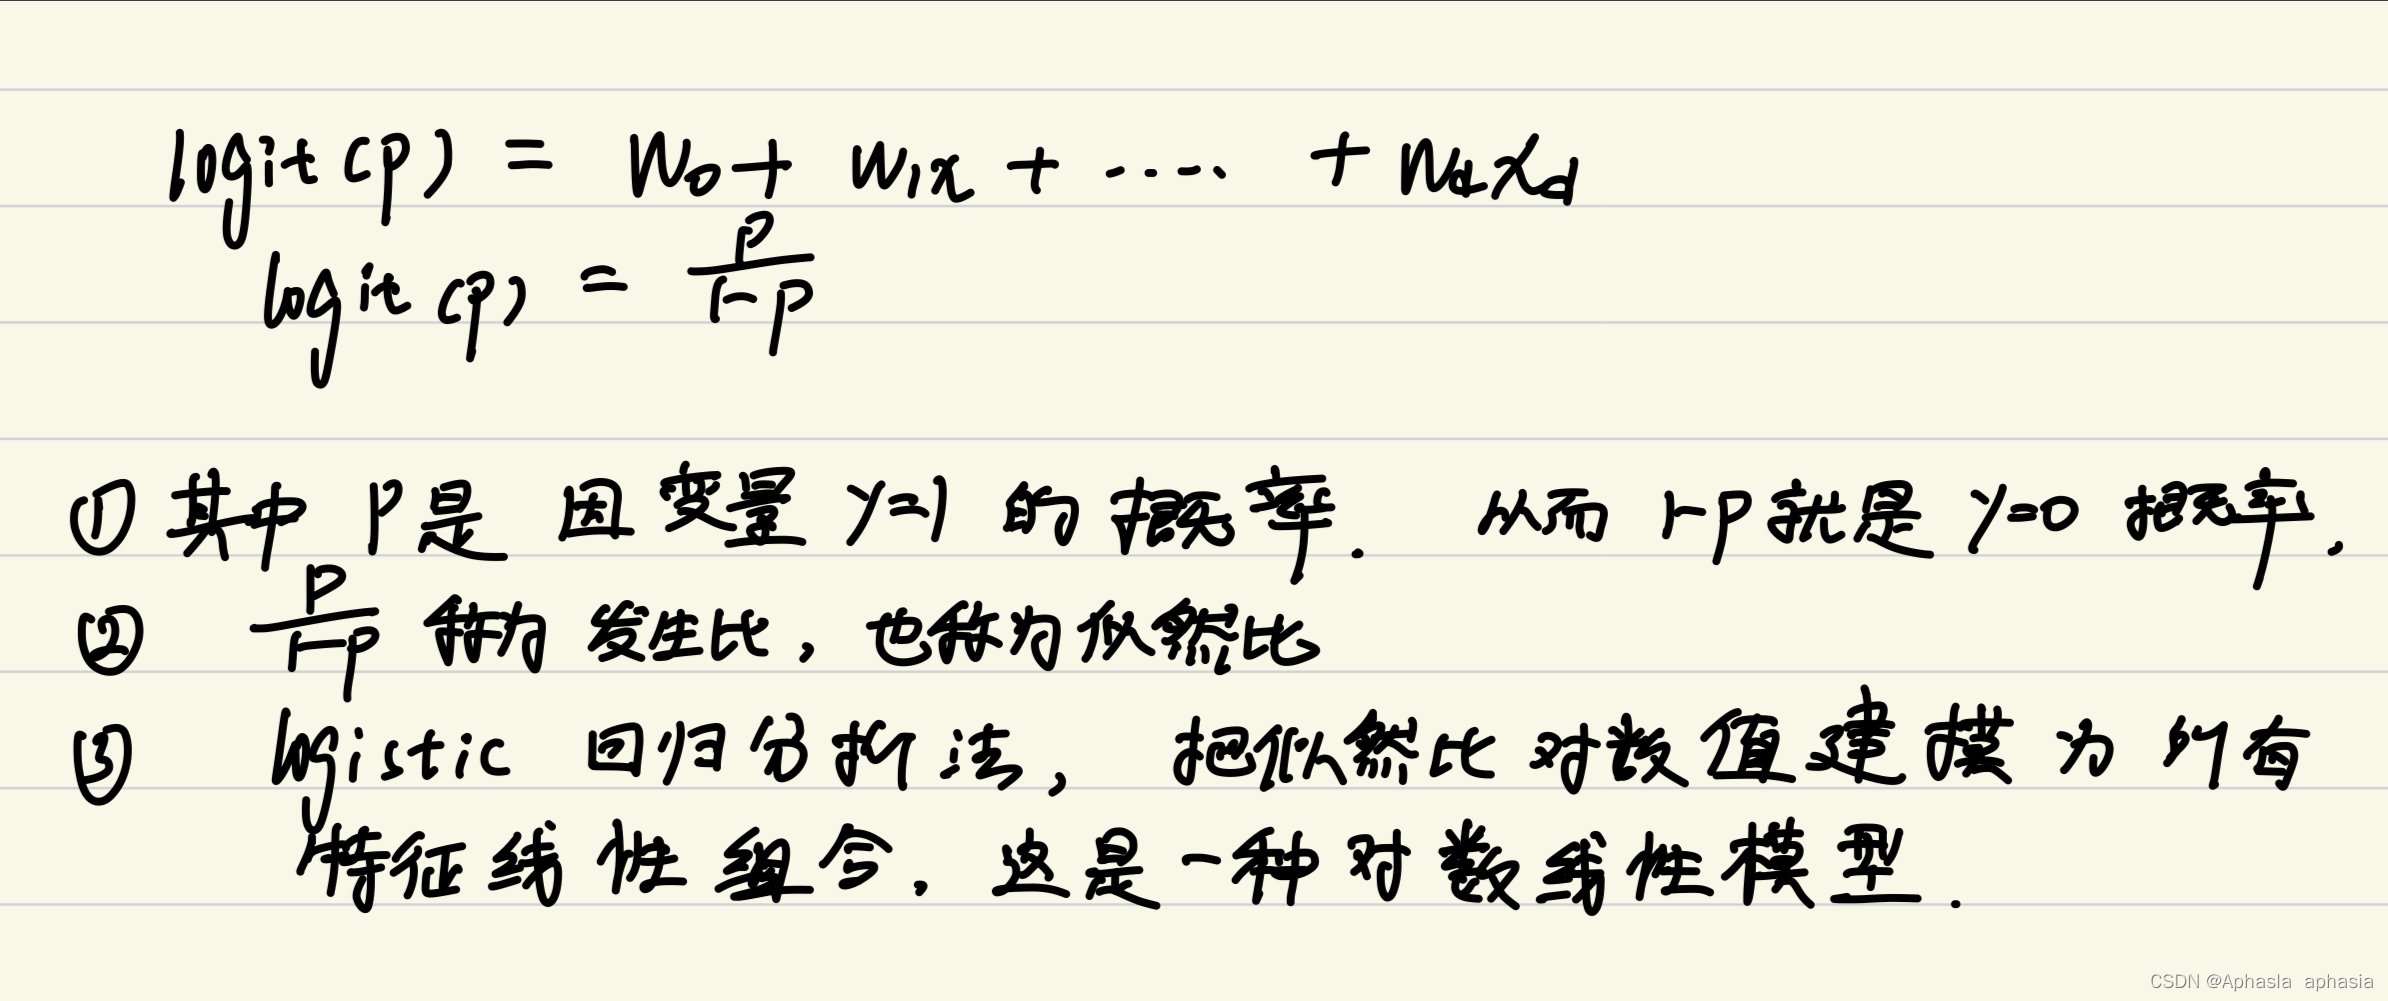 logit(p) = W₀ + w₁x + ..... + Wdxd
logit(p) = p/(1-p)
① 其中 P是 因变量 y=1 的概率. 从而 1-p就是 y=0 概率.
② P/(1-p) 称为 发生比, 也称为似然比
③ logistic 回归分析法, 把似然比对数值建模为所有
特征线性组合. 这是一种对数线性模型.
CSDN @Aphasla aphasia